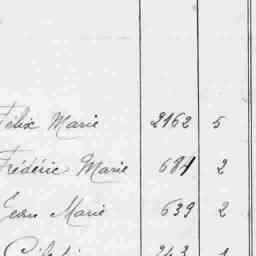 Félix Marie 2162 5
Frédéric Marie 684 2
Jean Marie 639 2